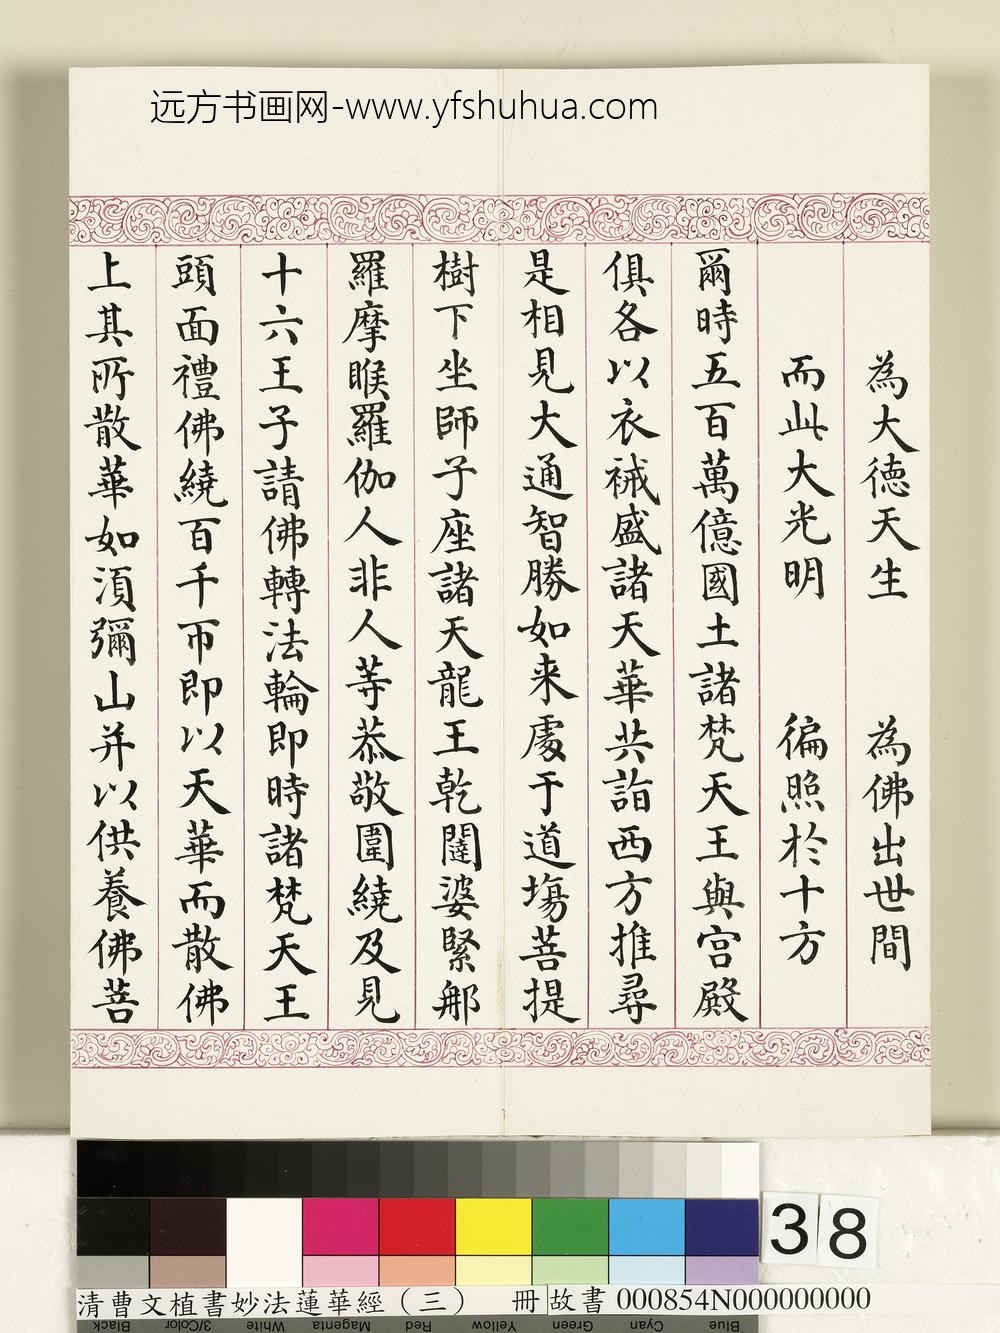 远方书画网-www.yfshuhua.com
為大德天生　為佛出世間
而此大光明　徧照於十方
爾時五百萬億國土諸梵天王與宮殿
俱各以衣祴盛諸天華共詣西方推尋
是相見大通智勝如来處于道場菩提
樹下坐師子座諸天龍王乾闥婆緊那
羅摩睺羅伽人非人等恭敬圍繞及見
十六王子請佛轉法輪即時諸梵天王
頭面禮佛繞百千帀即以天華而散佛
上其所散華如須彌山并以供養佛菩
38
清曹文植書妙法蓮華經（三） 冊 故書 000854N000000000
Black 3/Color White Magenta Red Yellow Green Cyan Blue